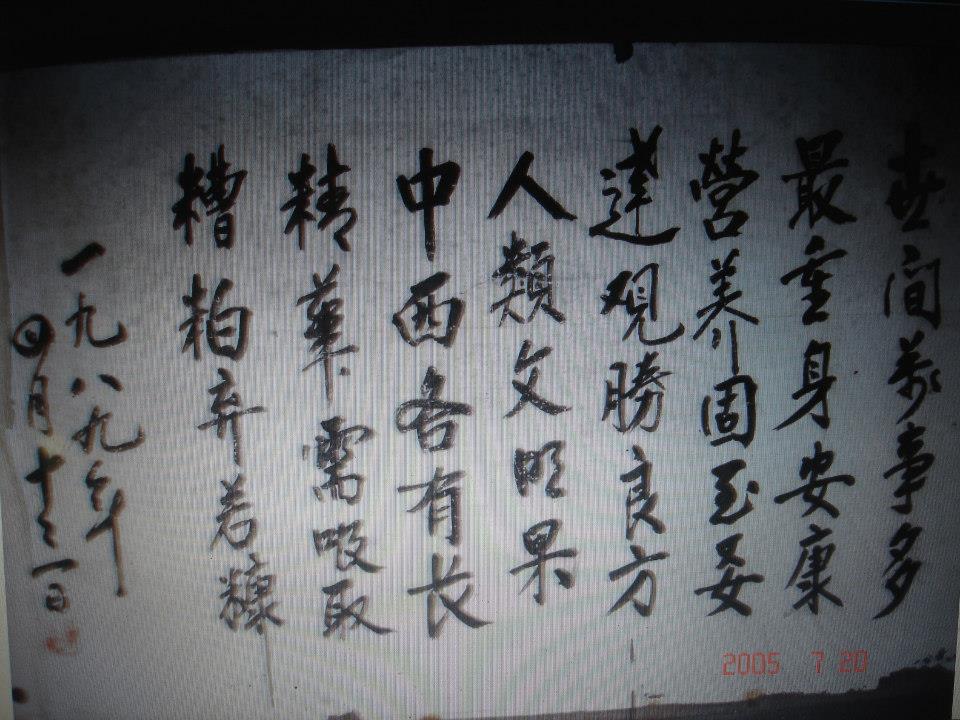 世间万事多
最重身安康
營养固至要
達观勝良方
人類文明果
中西各有长
精華需吸取
糟粕弃若糠
一九八九年
四月十二日
2005 7 20